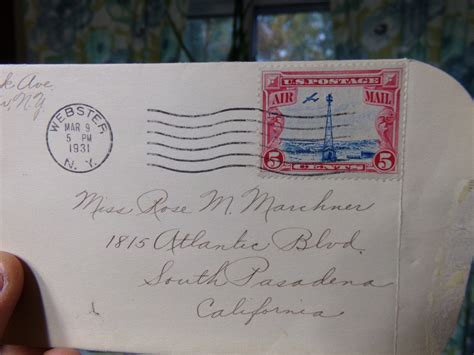 Ave.
N.Y.
WEBSTER
MAR 9
5 PM
1931
N.Y.
U.S. POSTAGE
AIR MAIL
5 CENTS 5
Miss Rose M. Marchner
1815 Atlantic Blvd.
South Pasadena
California